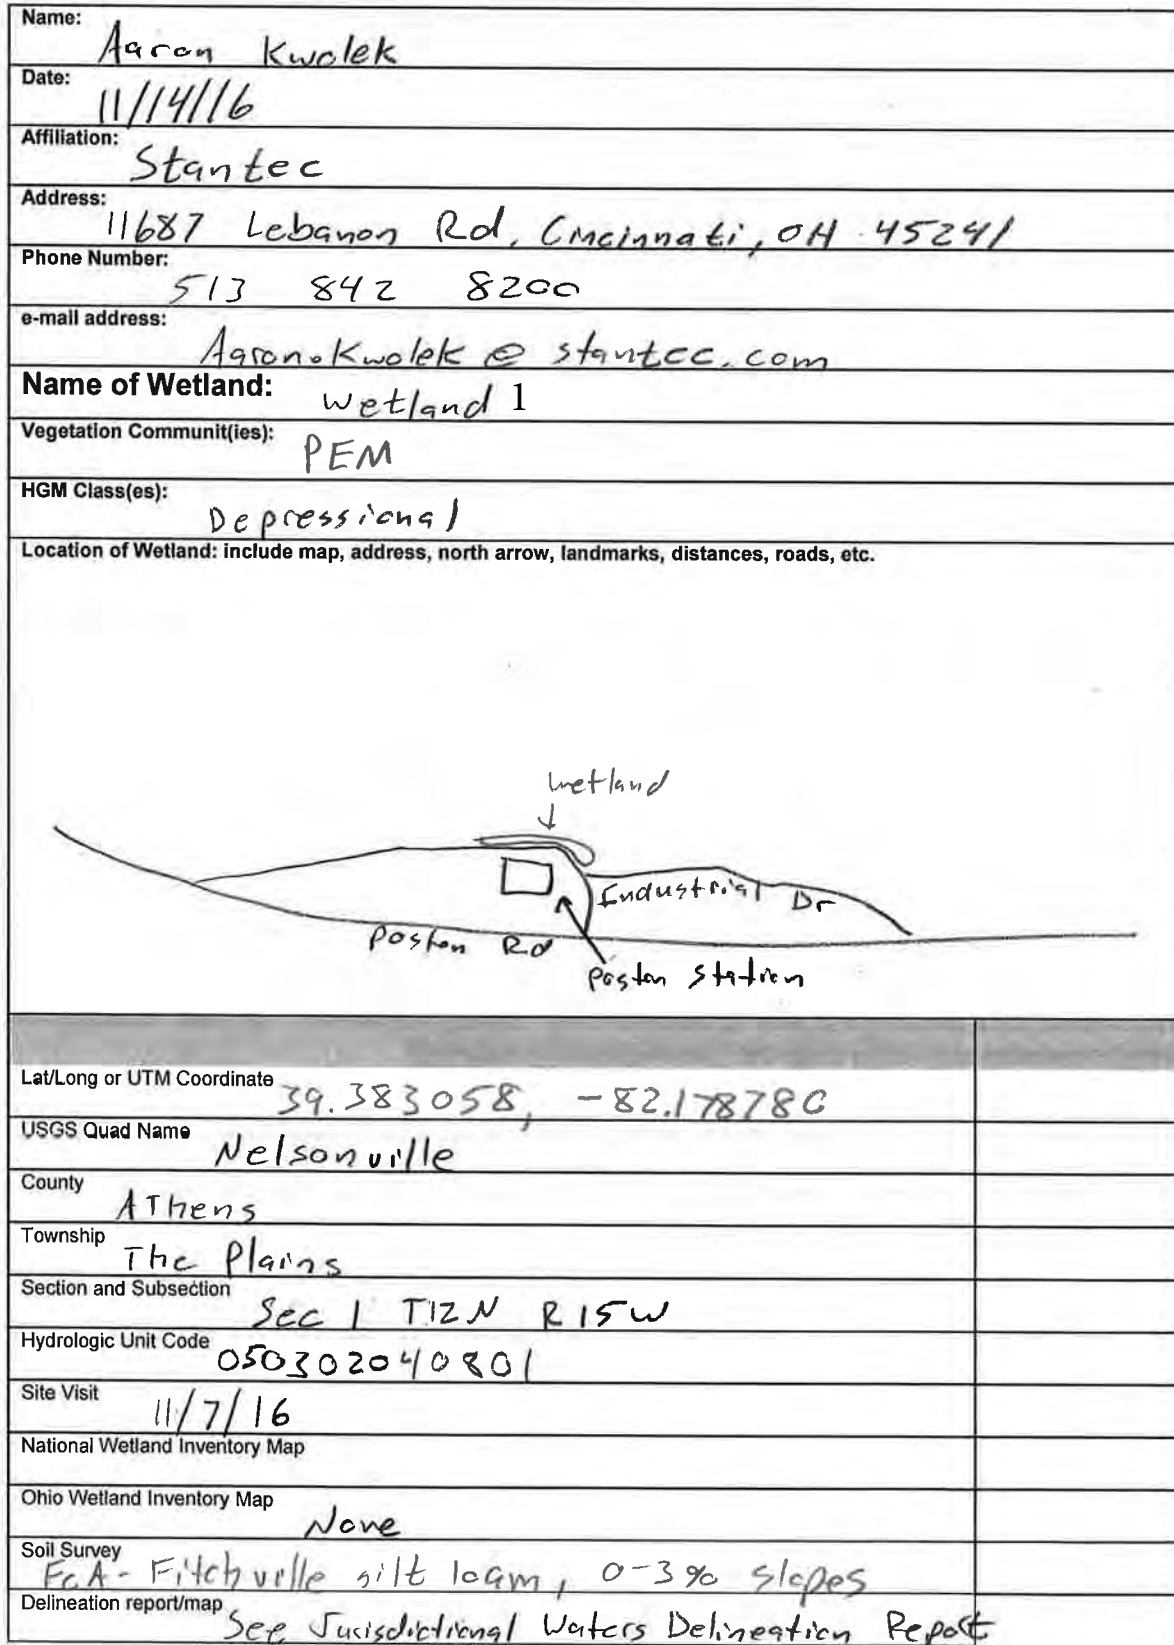 Name:
Aaron Kwolek
Date:
11/14/16
Affiliation:
Stantec
Address:
11687 Lebanon Rd, Cincinnati, OH 45241
Phone Number:
513 842 8200
e-mail address:
Aaron.Kwolek @ stantec.com
Name of Wetland: wetland 1
Vegetation Communit(ies):
PEM
HGM Class(es):
Depressional
Location of Wetland: include map, address, north arrow, landmarks, distances, roads, etc.
wetland
Industrial Dr
Poston Rd
Poston Station
Lat/Long or UTM Coordinate 39.383058, -82.178780
USGS Quad Name
Nelsonville
County
AThens
Township
The Plains
Section and Subsection
Sec 1 T12N R15W
Hydrologic Unit Code
050302040801
Site Visit
11/7/16
National Wetland Inventory Map
Ohio Wetland Inventory Map
None
Soil Survey
FcA - Fitchville silt loam, 0-3% slopes
Delineation report/map
See Jurisdictional Waters Delineation Report